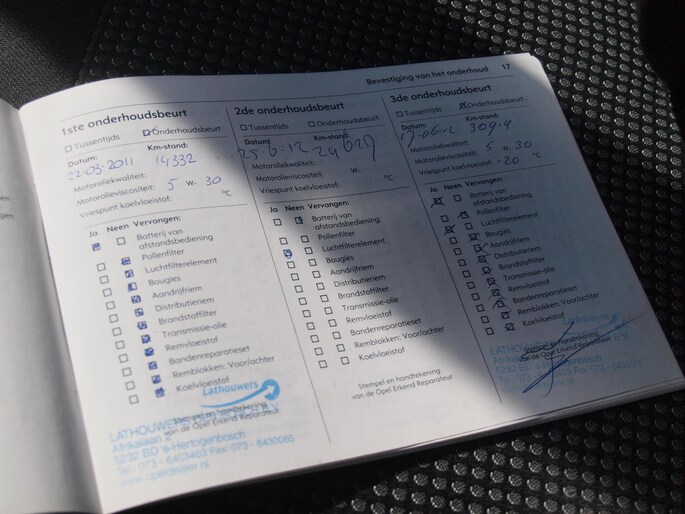 Bevestiging van het onderhoud 17
1ste onderhoudsbeurt
Tussentijds Onderhoudsbeurt
Datum: Km-stand:
22-03-2011 14332
Motoroliekwaliteit:
Motorolieviscositeit: 5 w. 30
Vriespunt koelvloeistof: °C
Ja Neen Vervangen:
Batterij van
afstandsbediening
Pollenfilter
Luchtfilterelement
Bougies
Aandrijfriem
Distributieriem
Brandstoffilter
Transmissie-olie
Remvloeistof
Bandenreparatieset
Remblokken: Voor/achter
Koelvloeistof
Lathouwers
Stempel en handtekening
van de Opel Erkend Reparateur
LATHOUWERS B.V.
Afrikalaan 2
5232 BD 's-Hertogenbosch
Tel. 073 - 6403463 Fax: 073 - 6430065
www.opeldealer.nl
2de onderhoudsbeurt
Tussentijds Onderhoudsbeurt
Datum: Km-stand:
Motoroliekwaliteit:
Motorolieviscositeit: w.
Vriespunt koelvloeistof: °C
Ja Neen Vervangen:
Batterij van
afstandsbediening
Pollenfilter
Luchtfilterelement
Bougies
Aandrijfriem
Distributieriem
Brandstoffilter
Transmissie-olie
Remvloeistof
Bandenreparatieset
Remblokken: Voor/achter
Koelvloeistof
Stempel en handtekening
van de Opel Erkend Reparateur
3de onderhoudsbeurt
Tussentijds Onderhoudsbeurt
Datum: Km-stand:
Motoroliekwaliteit:
Motorolieviscositeit: 5 w. 30
Vriespunt koelvloeistof: -20 °C
Ja Neen Vervangen:
Batterij van
afstandsbediening
Pollenfilter
Luchtfilterelement
Bougies
Aandrijfriem
Distributieriem
Brandstoffilter
Transmissie-olie
Remvloeistof
Bandenreparatieset
Remblokken: Voor/achter
Koelvloeistof
Lathouwers
Stempel en handtekening
van de Opel Erkend Reparateur
LATHOUWERS B.V.
Afrikalaan 2
5232 BD 's-Hertogenbosch